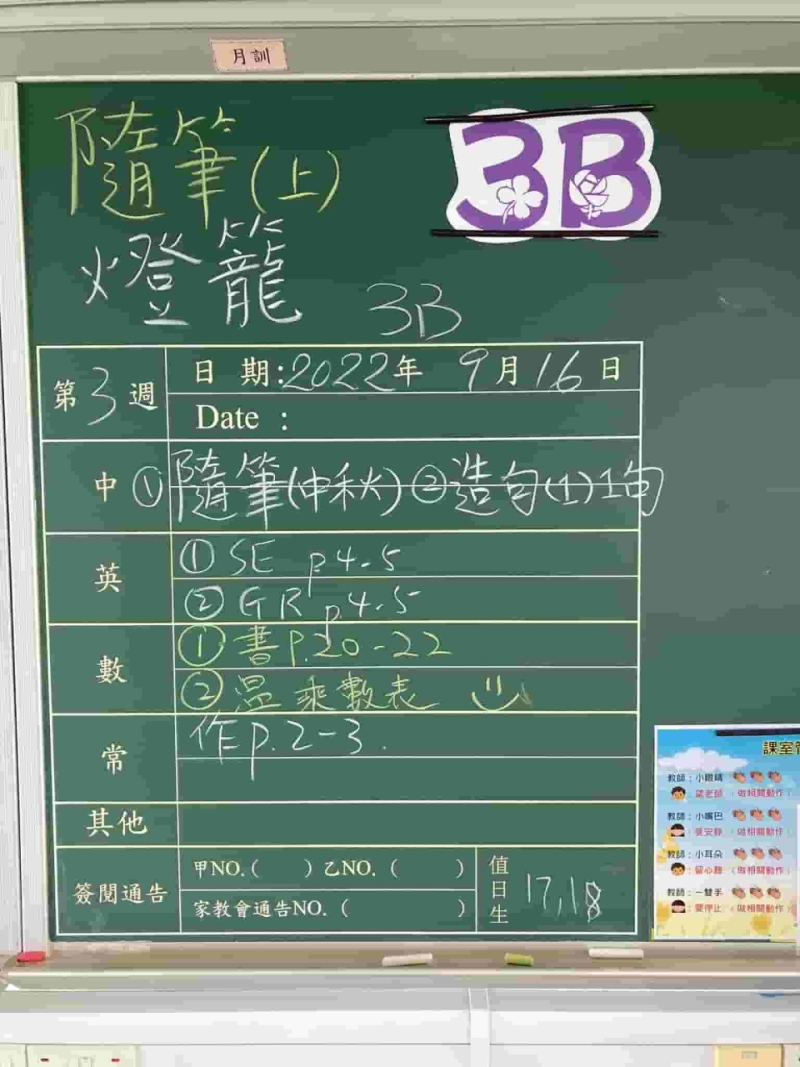 月訓
隨筆(上)
3B
燈籠
3B
第3週
日 期:2022年 9月16日
Date :
中 ①隨筆(中秋) ②造句(1)1句
英
① SE p4-5
② GR p.4-5
數
① 書P.20-22
② 溫乘數表
常
作p.2-3.
其他
簽閱通告
甲NO.( ) 乙NO.( )
家教會通告NO.( )
值日生
17,18
課室管
教師:小眼睛
望老師 (做相關動作)
教師:小嘴巴
要安靜 (做相關動作)
教師:小耳朵
留心聽 (做相關動作)
教師:一雙手
要停止 (做相關動作)